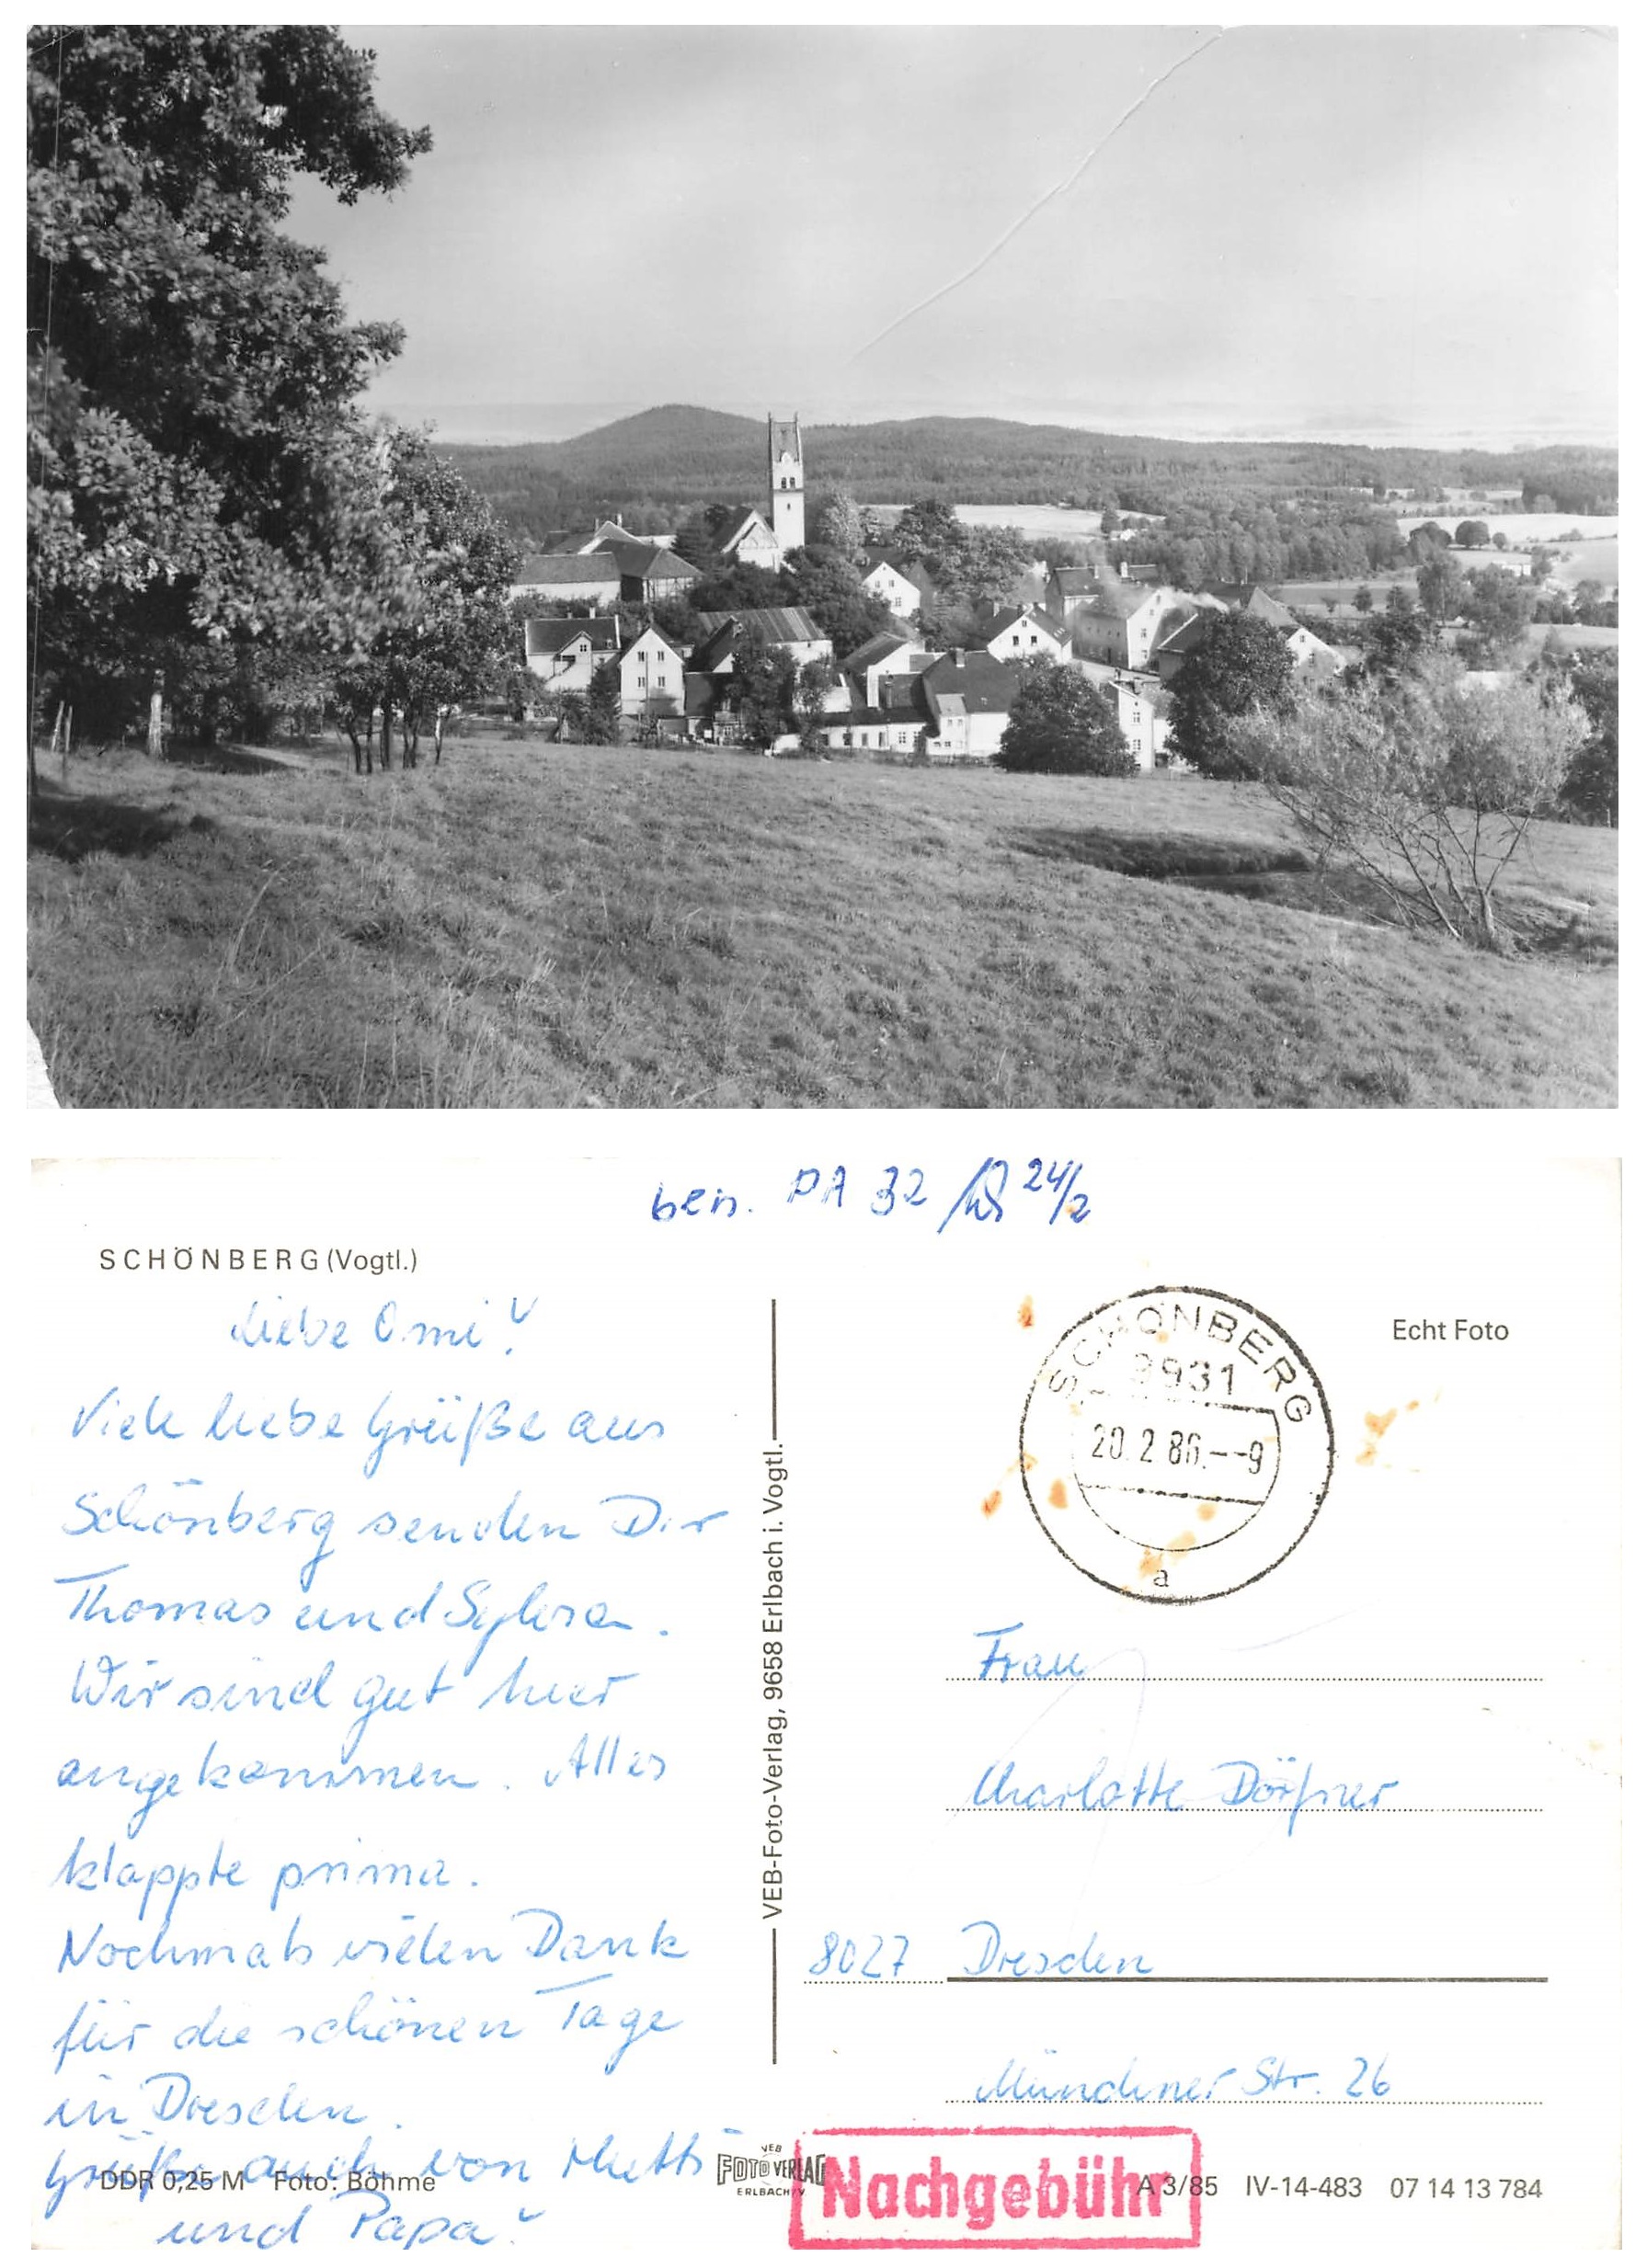 ben. PA 32 24/2
SCHÖNBERG (Vogtl.)
Liebe Omi!
Viele liebe Grüße aus
Schönberg senden Dir
Thomas und Sylvia.
Wir sind gut hier
angekommen. Alles
klappte prima.
Nochmals vielen Dank
für die schönen Tage
in Dresden.
Grüße auch von Mutti
und Papa!
DDR 0,25 M Foto: Böhme
VEB-Foto-Verlag, 9658 Erlbach i. Vogtl.
VEB
FOTO VERLAG
ERLBACH/V.
Echt Foto
SCHÖNBERG
9931
20.2.86.--9
a
Frau
Charlotte Dörfner
8027 Dresden
Münchner Str. 26
Nachgebühr
A 3/85 IV-14-483 07 14 13 784